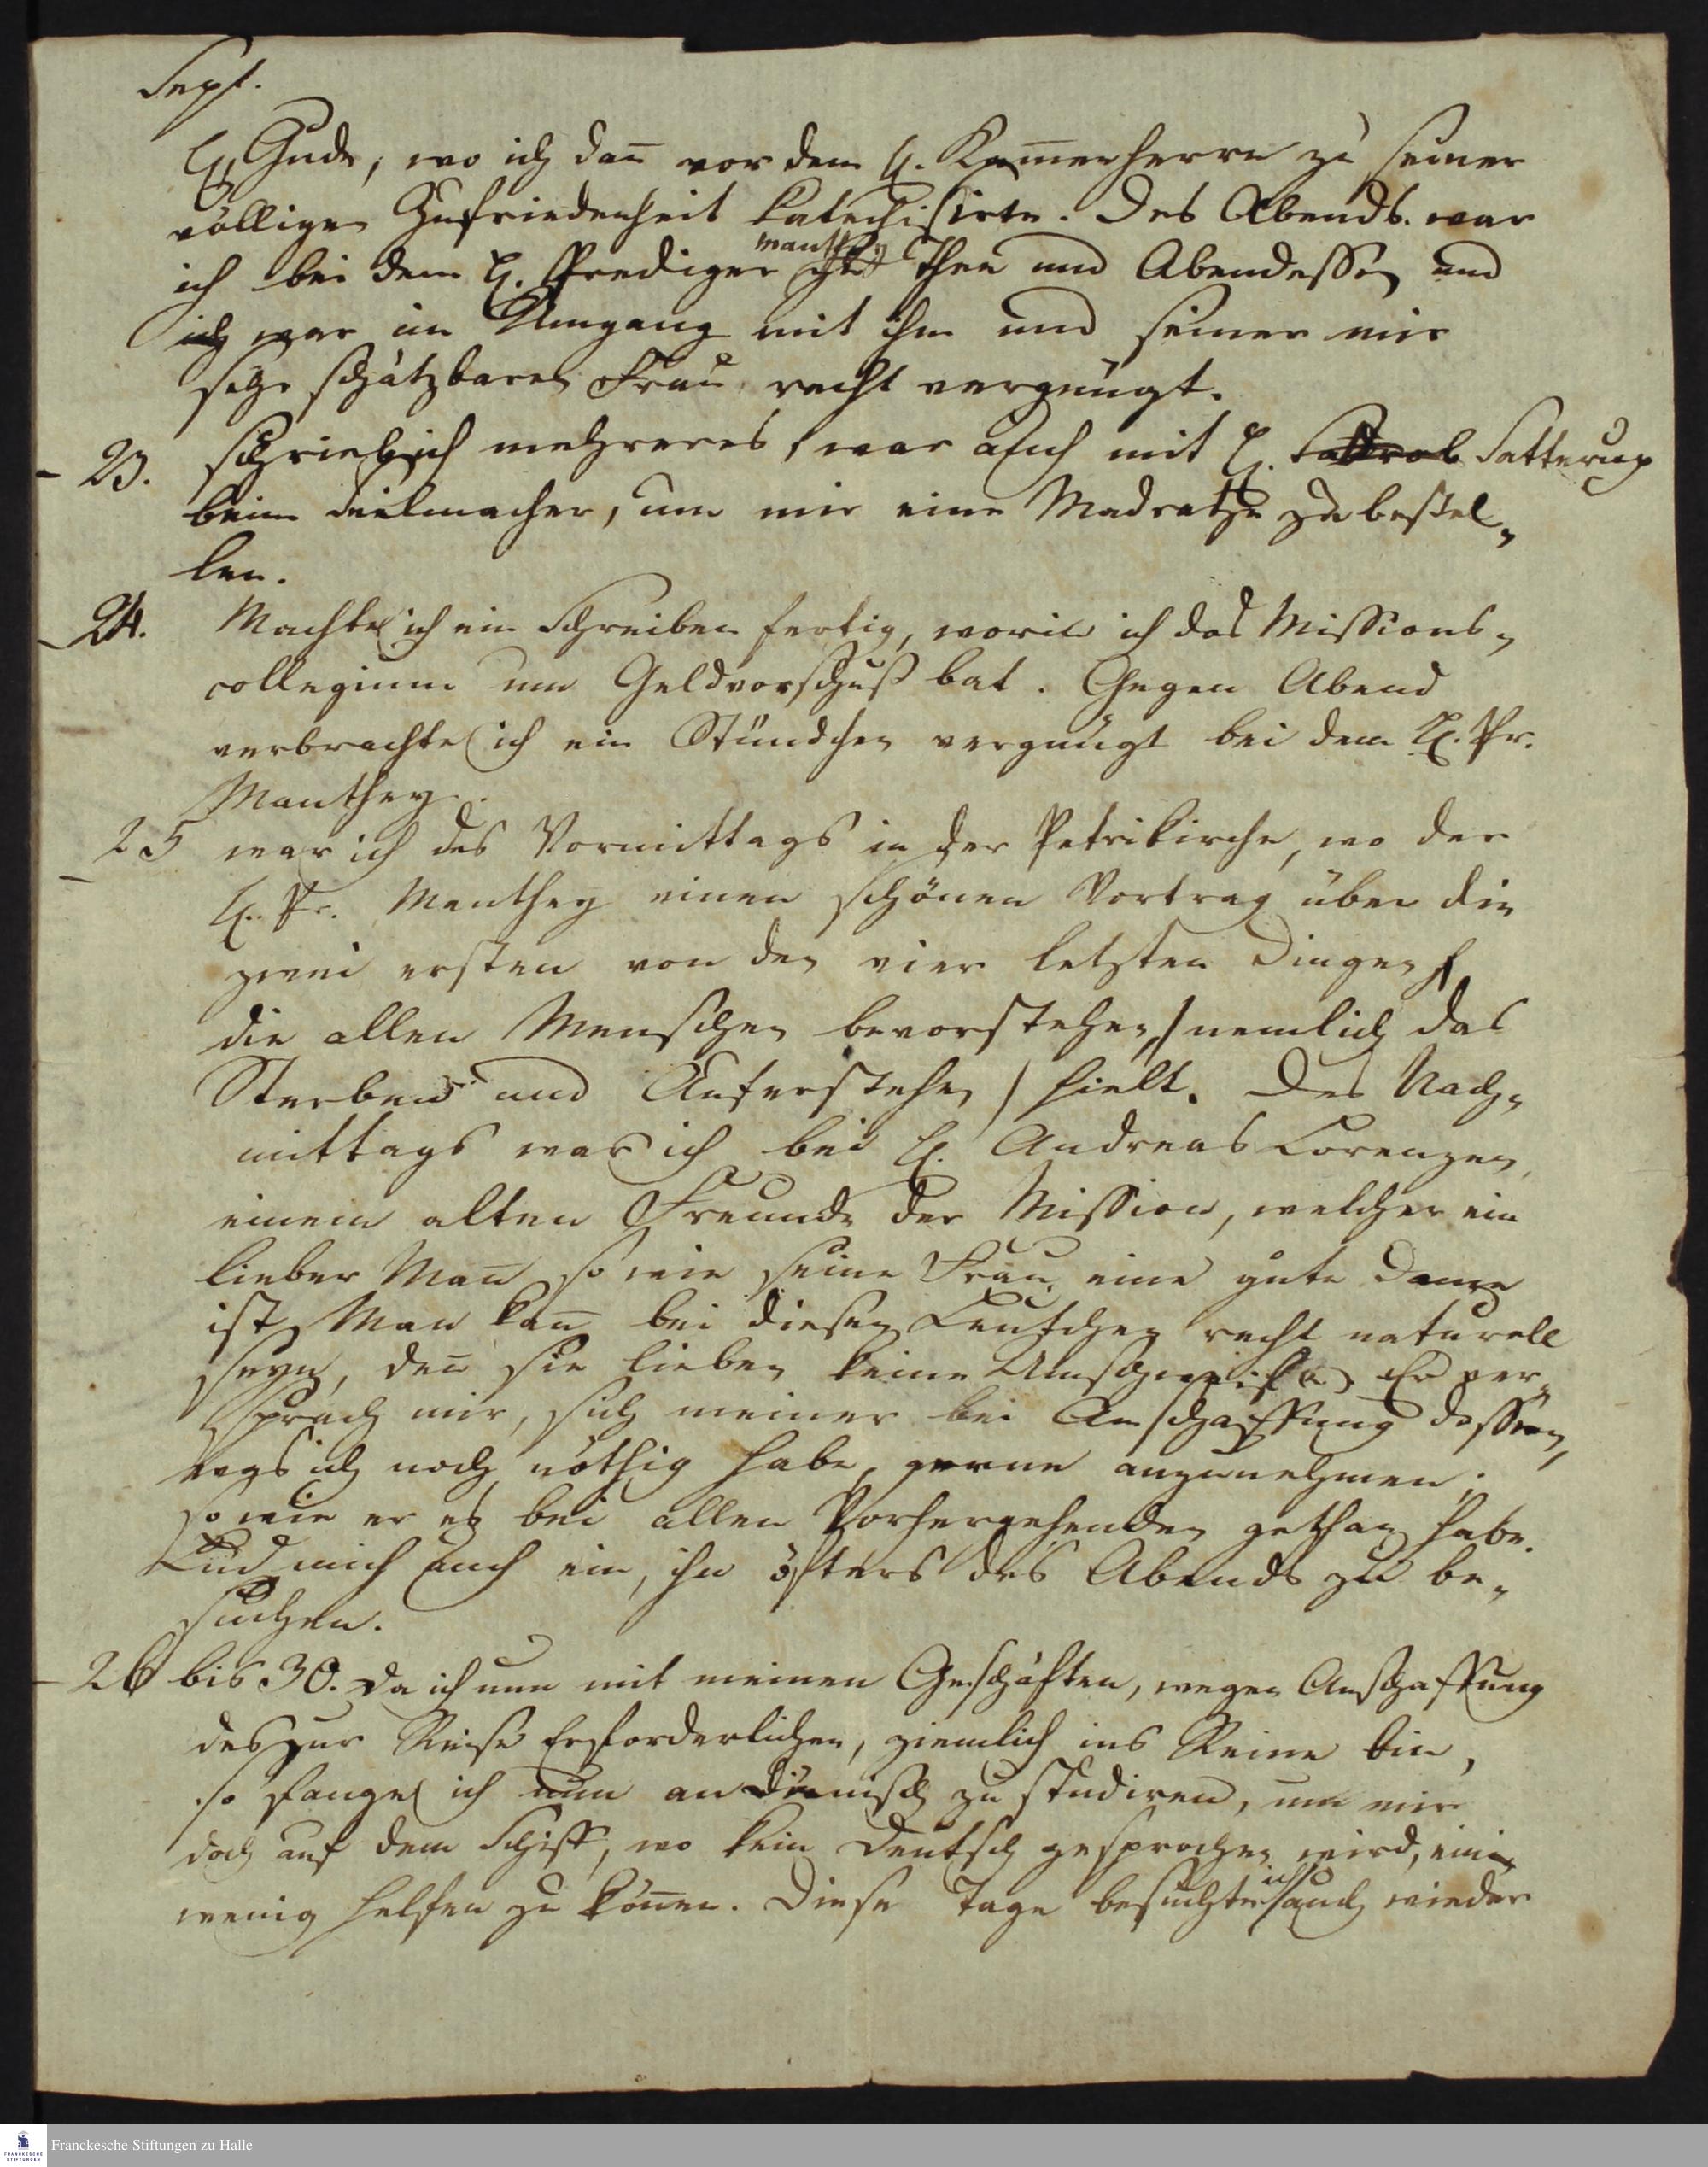 Sept.
H. Gude, wo ich dañ vor dem H. Kam̄erherrn zu seiner
völligen Zufriedenheit katechisirte. Des Abends war
ich bei dem H. Prediger Manthey Thee und Abendessen und
ich war im Umgang mit ihm und seiner mir
sehr schätzbaren Frau recht vergnügt.
- 23. schrieb ich mehreres, war auch mit H. Satterup
beim Seilmacher, um mir eine Madratze zu bestel-
len.
- 24. Machte ich ein Schreiben fertig, worin ich das Missions-
collegium um Geldvorschuß bat. Gegen Abend
verbrachte ich ein Stündchen vergnügt bei dem H. Pr.
Manthey.
- 25 war ich des Vormittags in der Petrikirche, wo der
H. Pr. Manthey einen schönen Vortrag über die
zwei ersten von den vier letzten Dingen,
die allen Menschen bevorstehen, / nemlich das
Sterben und Auferstehen / hielt. Des Nach-
mittags war ich bei H. Andreas Lorenzen,
einem alten Freunde der Mission, welcher ein
lieber Mañ so wie seine Frau eine gute Dame
ist. Man kañ bei diesen Leutchen recht naturell
seyn, deñ sie lieben keine Umschweife. Er ver-
sprach mir, sich meiner bei Anschaffung dessen,
was ich noch nöthig habe, gerne anzunehmen;
so wie er es bei allen Vorhergehenden gethan habe.
Lud mich auch ein, ihn öfters des Abends zu be-
suchen.
- 26 bis 30. Da ich nun mit meinen Geschäften, wegen Anschaffung
des zur Reise Erforderlichen, ziemlich ins Reine bin,
so fange ich nun an Dänisch zu studiren, um mir
doch auf dem Schiff, wo kein Deutsch gesprochen wird, ein
wenig helfen zu köñen. Diese Tage besuchte ich auch wieder
Franckesche Stiftungen zu Halle